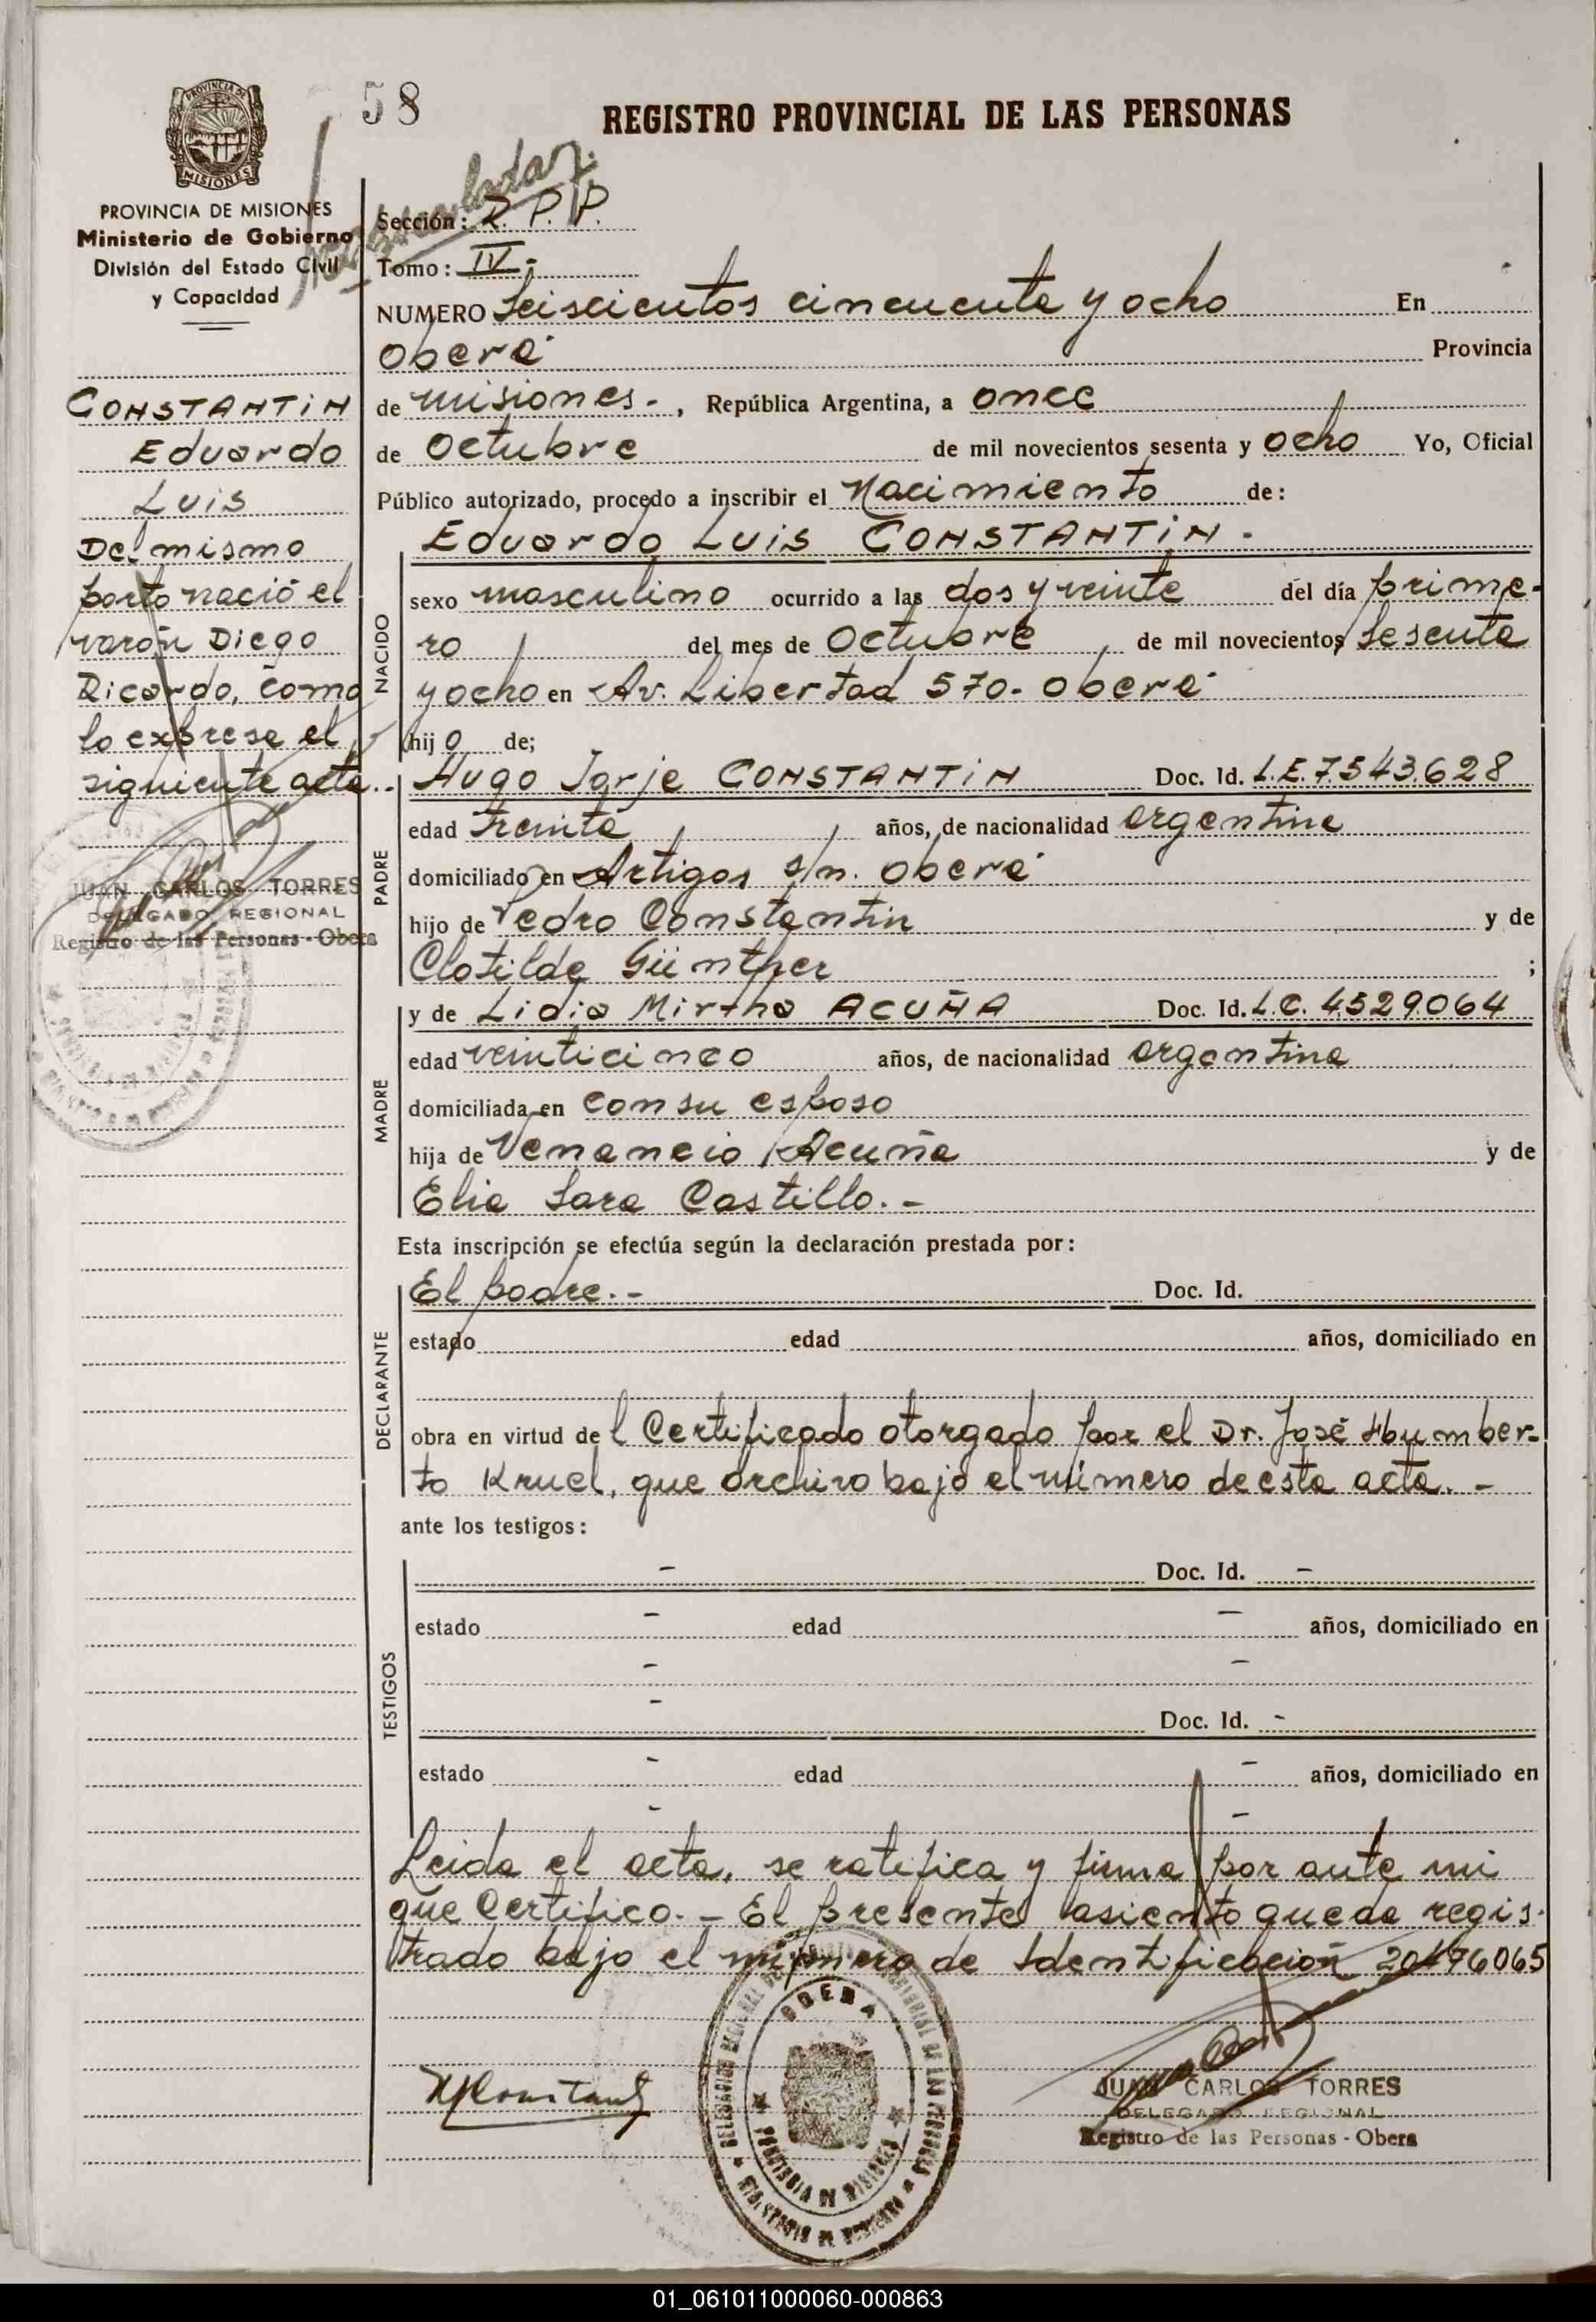 58
REGISTRO PROVINCIAL DE LAS PERSONAS
PROVINCIA DE MISIONES
PROVINCIA DE MISIONES
Ministerio de Gobierno
División del Estado Civil
y Capacidad
Sección: R. P. P.
Tomo: IV.-
NUMERO Seiscientos cincuenta y ocho En
Oberá Provincia
de Misiones.-, República Argentina, a once
de Octubre de mil novecientos sesenta y ocho Yo, Oficial
Público autorizado, procedo a inscribir el Nacimiento de:
Eduardo Luis CONSTANTIN.
CONSTANTIN
Eduardo
Luis
Del mismo
parto nació el
varón Diego
Ricardo, como
lo expresa el
siguiente acta..
JUAN CARLOS TORRES
DELEGADO REGIONAL
Registro de las Personas - Obera
NACIDO
sexo masculino ocurrido a las dos y veinte del día prime-
ro del mes de Octubre, de mil novecientos sesenta
y ocho en Av. Libertad 570. Oberá
hijo de;
PADRE
Hugo Jorje CONSTANTIN Doc. Id. L.E. 7.543.628
edad treinta años, de nacionalidad argentina
domiciliado en Artigas s/n. Oberá
hijo de Pedro Constantin y de
Clotilde Günther ;
MADRE
y de Lidia Mirtha ACUÑA Doc. Id. L.C. 4529064
edad veinticinco años, de nacionalidad argentina
domiciliada en con su esposo
hija de Venancio Acuña y de
Elia Sara Castillo.-
Esta inscripción se efectúa según la declaración prestada por:
DECLARANTE
El padre.- Doc. Id.
estado edad años, domiciliado en
obra en virtud del Certificado otorgado por el Dr. José Humber-
to Kruel, que archivo bajo el número de esta acta.-
ante los testigos:
TESTIGOS
- Doc. Id. -
estado - edad - años, domiciliado en
- -
- Doc. Id. -
estado - edad - años, domiciliado en
- -
Leida el acta, se ratifica y firma por ante mi
que Certifico.- El presente asiento queda regis-
trado bajo el número de Identificación 20476065
OBERA
PROVINCIA DE MISIONES
JUAN CARLOS TORRES
DELEGADO REGIONAL
Registro de las Personas - Obera
01_061011000060-000863